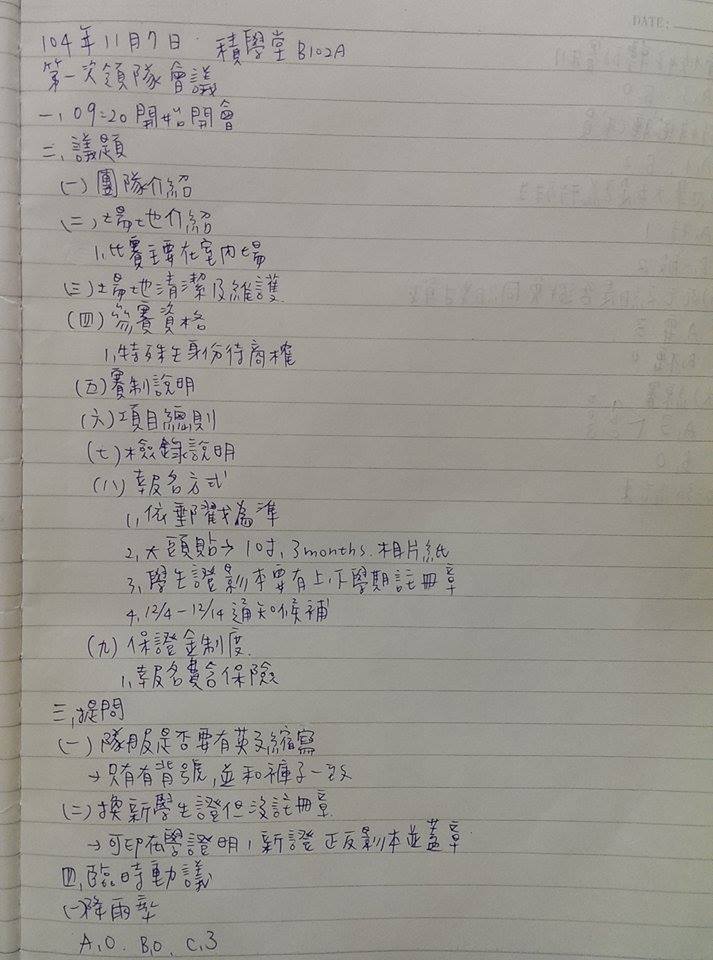 DATE:
104年11月7日 積學堂 B102A
第一次領隊會議
一, 09:20開始開會
二, 議題
(一) 團隊介紹
(二) 場地介紹
1, 比賽主要在室內場
(三) 場地清潔及維護
(四) 參賽資格
1, 特殊生身份待商榷
(五) 賽制說明
(六) 項目總則
(七) 檢錄說明
(八) 報名方式
1, 依郵戳為準
2, 大頭貼→1吋, 3months. 相片紙
3, 學生證影本要有上、下學期註冊章
4, 12/4-12/14 通知候補
(九) 保證金制度.
1, 報名費含保險
三, 提問
(一) 隊服是否要有英文縮寫
→只有有背號, 並和褲子一致
(二) 換新學生證但沒註冊章.
→可印在學證明, 新證正反影本並蓋章
四, 臨時動議
(一) 降雨
A, 0. B, 0. C, 3